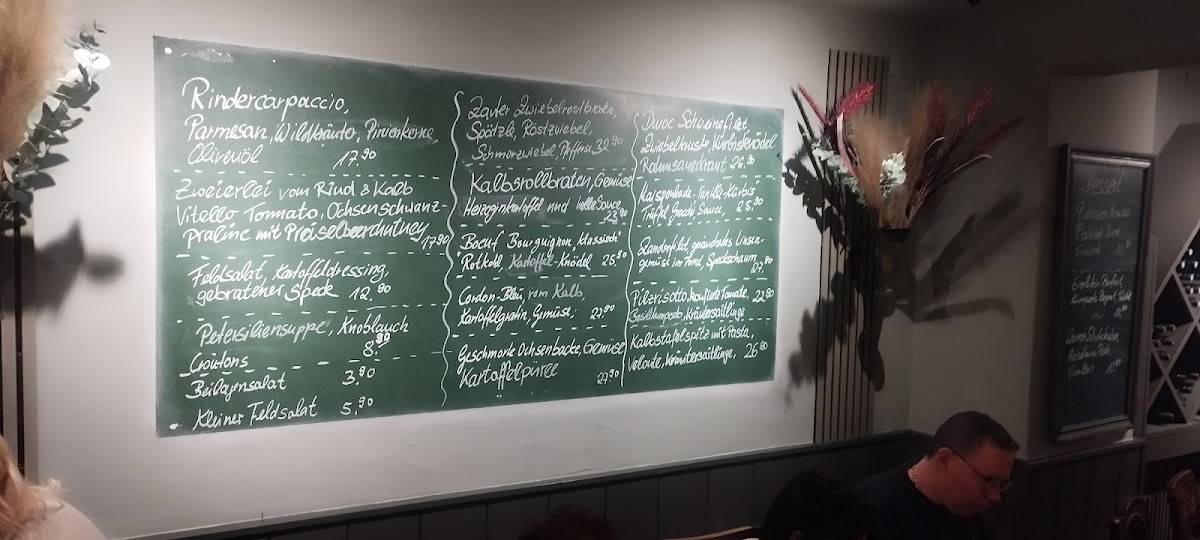 Rindercarpaccio,
Parmesan, Wildkräuter, Pinienkerne,
Olivenöl 17.90
Zweierlei vom Rind & Kalb
Vitello Tonnato, Ochsenschwanz-
praline mit Preiselbeerchutney 17.90
Feldsalat, Kartoffeldressing,
gebratener Speck 12.90
Petersiliensuppe, Knoblauch
Croutons 8.90
Beilagensalat 3.90
Kleiner Feldsalat 5.90
Zarter Zwiebelrostbraten,
Spätzle, Röstzwiebel,
Schmorzwiebel, 32.90
Kalbsrollbraten, Gemüse
Herzoginkartoffel und helle Sauce
23.90
Boeuf Bourguignon "klassisch"
Rotkohl, Kartoffel-Knödel 25.90
Cordon-Bleu vom Kalb,
Kartoffelgratin, Gemüse, 27.90
Geschmorte Ochsenbacke, Gemüse
Kartoffelpüree 27.90
Duroc Schweinefilet
Zwiebelkruste, Kürbisknödel
Rahmsauerkraut 26.90
Maispoularde, Vanille-Kürbis
Trüffel Gnocchi Sauce, 25.90
Zanderfilet gebratenes Linsen-
gemüse im Fond, Speckschaum
27.90
Pilzrisotto, konfierte Tomate, 22.90
Basilikumpesto, Kräutersaitlinge
Kalbstafelspitz mit Pasta,
Veloute, Kräutersaitlinge, 26.90
Dessert